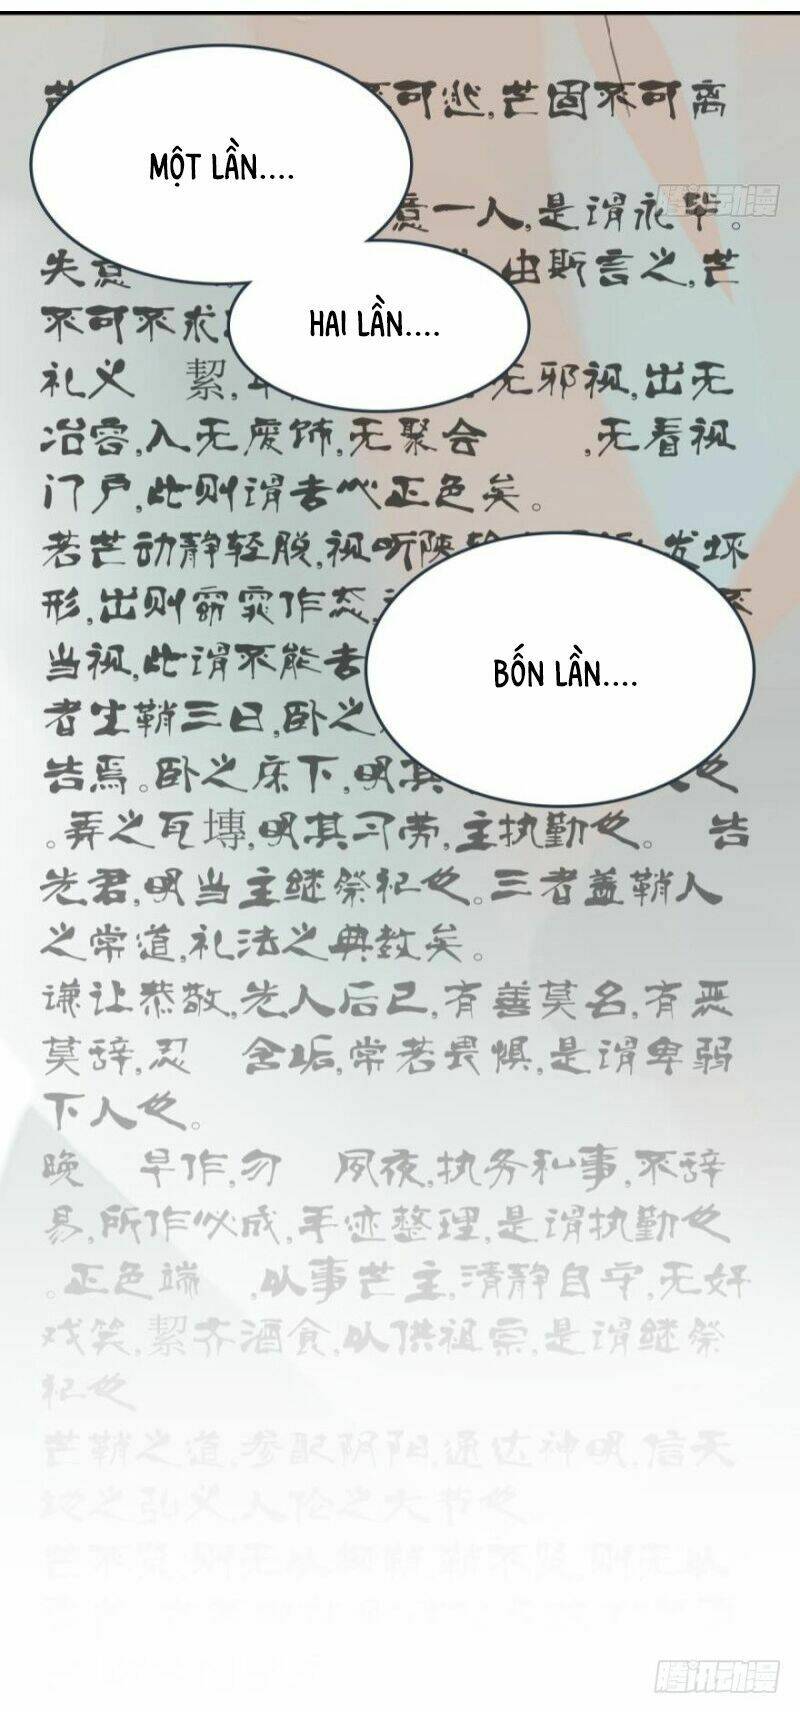 MỘT LẦN....
HAI LẦN....
BỐN LẦN....
不可逃,芒固不可离
意一人,是谓永毕。
失意 由斯言之,芒
不可不求
礼义 絜, 无邪视,出无
冶容,入无废饰,无聚会 ,无看视
门户,此则谓专心正色矣。
若芒动静轻脱,视听陕输 发坏
形,出则窈窕作态,
当视,此谓不能专
者生鞘三日,卧之
告焉。卧之床下,明其 也
。弄之瓦塼,明其习劳,主执勤也。 告
先君,明当主继祭祀也。三者盖鞘人
之常道,礼法之典教矣。
谦让恭敬,先人后己,有善莫名,有恶
莫辞,忍 含垢,常若畏惧,是谓卑弱
下人也。
晚 早作,勿 夙夜,执务私事,不辞
易,所作必成,手迹整理,是谓执勤也
。正色端 ,以事芒主,清静自守,无好
戏笑,絜齐酒食,以供祖宗,是谓继祭
祀也
芒鞘之道,参配阴阳,通达神明,信天
地之弘义,人伦之大节也
芒不贤,则无以 鞘,鞘不贤,则无以
腾讯动漫
腾讯动漫